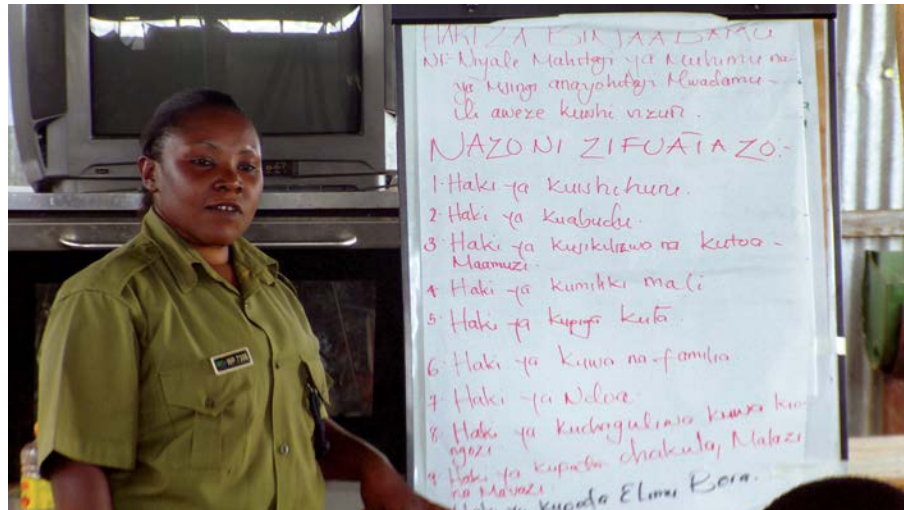 HAKI ZA BINTAADAMU
NI:- Niyale Mahitaji ya Muhimu na-
ya Msingi anayohitaji Mwadamu -
ili aweze kuishi vizuri.
NAZO NI ZIFUATAZO:-
1. Haki ya kuishi huru.
2. Haki ya Kuabudu.
3. Haki ya kusikilizwo na kutoa -
Maamuzi.
4. Haki ya kumiliki mali
5. Haki ya kupiga kura.
6. Haki ya kuwa na familia
7. Haki ya Ndoa
8. Haki ya kuchaguliwa kuwa kio-
ngozi
9. Haki ya kupata chakula, Malazi
na Mavazi.
ya kupata Elimu Bora.
WP 7308